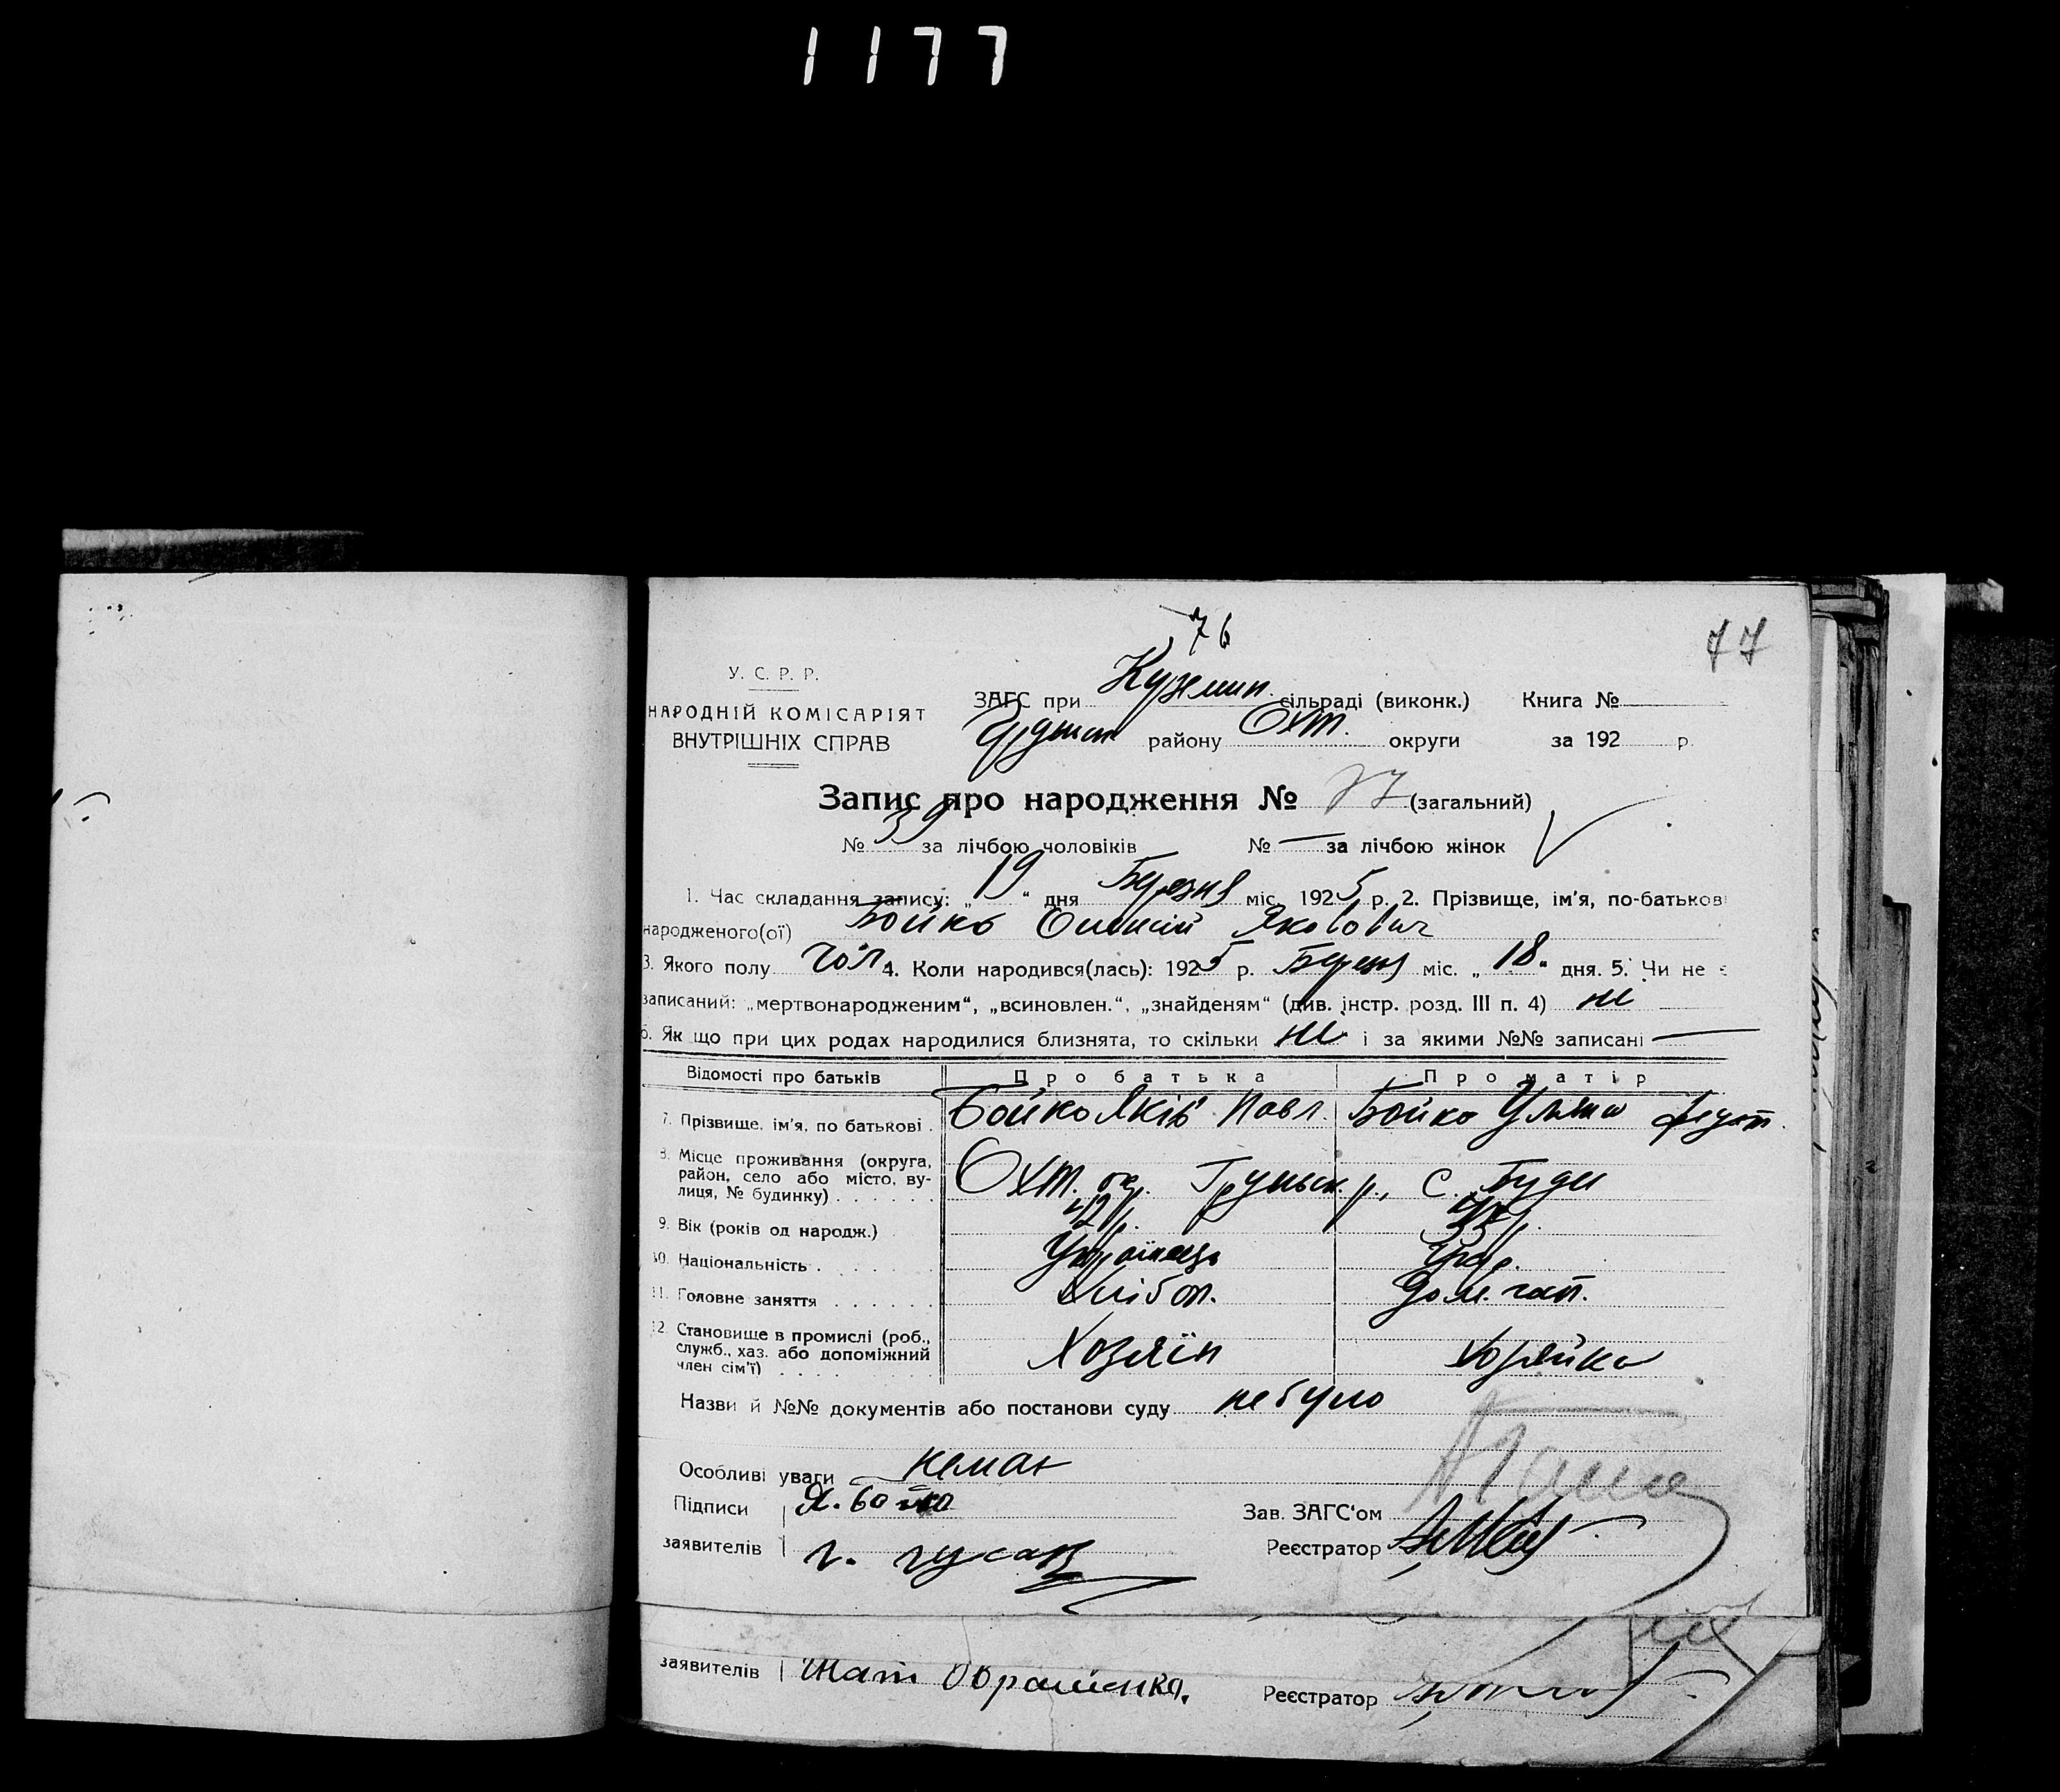 1177
76
77
У. С. Р. Р.
НАРОДНІЙ КОМІСАРІЯТ
ВНУТРІШНІХ СПРАВ
ЗАГС при Куземин. сільраді (виконк.) Книга №
району Охт. округи за 192 р.
Запис про народження № 77 (загальний)
№ 39 за лічбою чоловіків № — за лічбою жінок
1. Час складання запису: „19“ дня Березня міс. 1925 р. 2. Прізвище, ім'я, по-батькові
народженого(ої) Бойко Олексій Якович
3. Якого полу чол 4. Коли народився(лась): 1925 р. Березня міс. „18“ дня. 5. Чи не є
записаний: „мертвонародженим“, „всиновлен.“, „знайденям“ (див. інстр. розд. III п. 4) ні
6. Як що при цих родах народилися близнята, то скільки ні і за якими №№ записані —
Відомості про батьків Про батька Про матір
7. Прізвище, ім'я, по батькові . Бойко Яків Павл. Бойко Уляна
8. Місце проживання (округа, район, село або місто, вулиця, № будинку) . . . . . . Охт. окр. Груньск. р., С. Буди
9. Вік (років од народж.) 42 р. р.
10. Національність . . . . . . . Українець Укр.
11. Головне заняття . . . . . . Хлібор. Дом. зан.
12. Становище в промислі (роб., служб., хаз. або допоміжний член сім'ї) . . . . Хозяїн Хозяйка
Назви й №№ документів або постанови суду не було
Особливі уваги немає
Підписи Я. бойко Зав. ЗАГС'ом
заявителів Г. гусак Реєстратор
заявителів Реєстратор